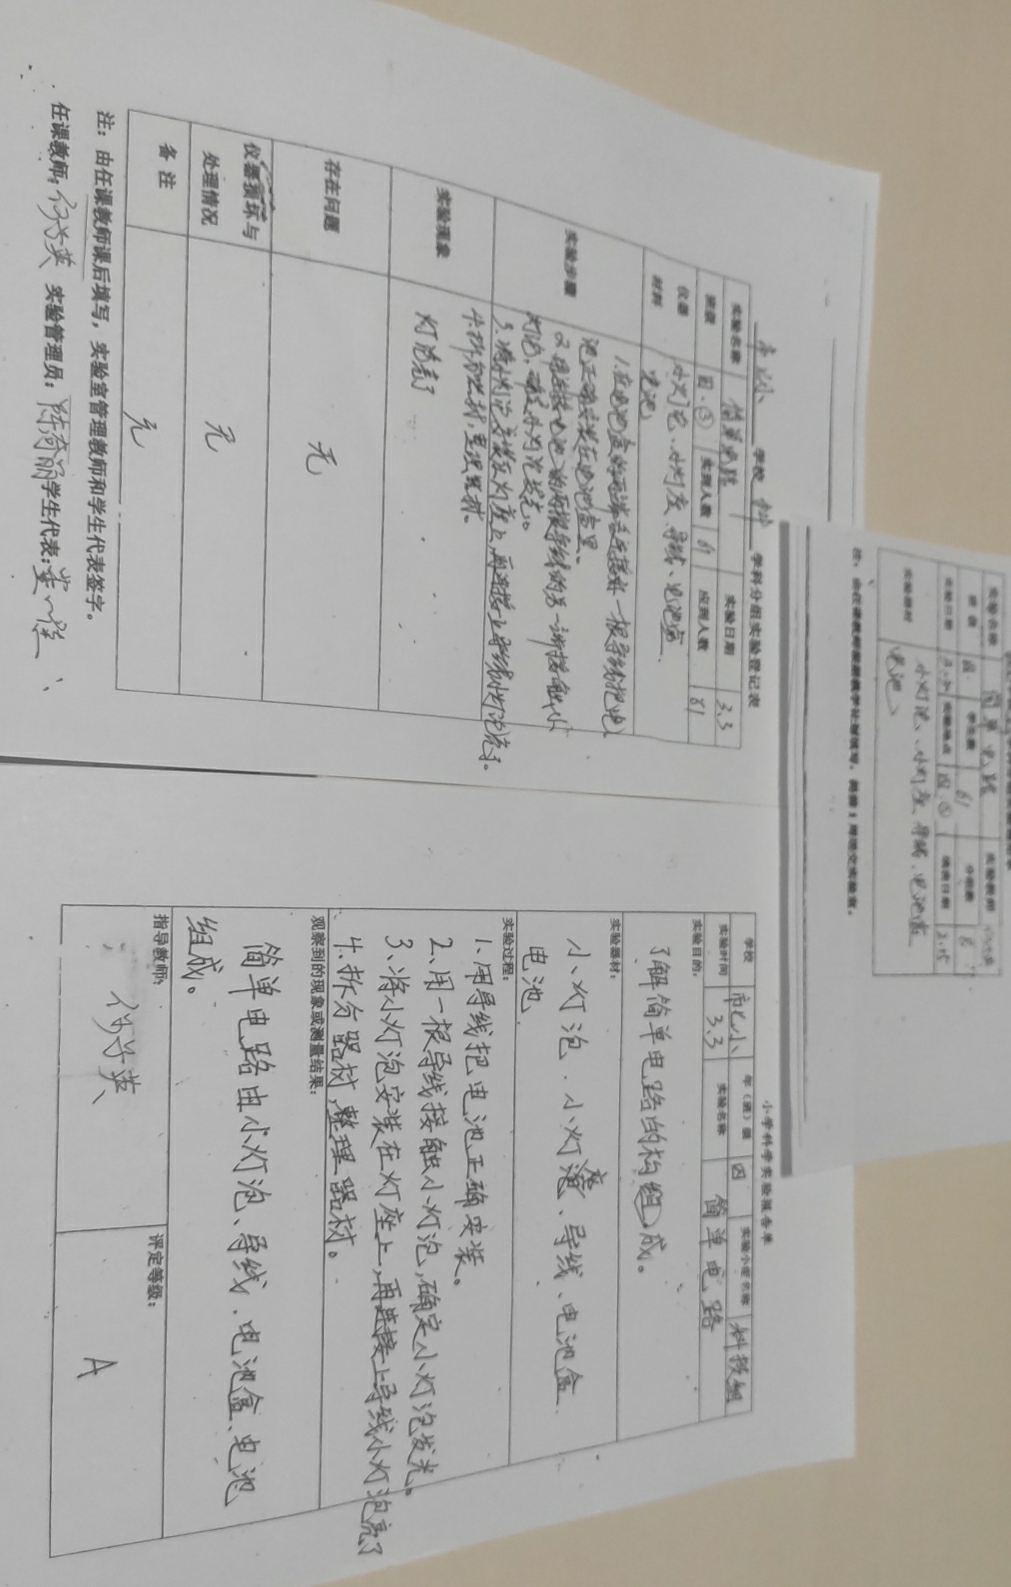 学校 科 学科分组实验登记表
实验名称 简单电路 实验日期 3.3
班级 四.③ 实到人数 61 应到人数 61
仪器材料 小灯泡、小灯座、导线、电池盒、
电池
实验步骤 1.在电池盒的两端各连接好一根导线把电
池正确安装在电池盒里、
3.将小灯泡安装在灯座上,再连接上导线小灯泡亮了。
4.拆分器材,整理器材。
实验现象 灯泡亮了
存在问题 无
仪器损坏与处理情况 无
备注 无
注:由任课教师课后填写,实验室管理教师和学生代表签字。
任课教师: 实验管理员: 学生代表:
实验名称 简单电路 实验教师
班级 四. 学生数 61 分组数
实验日期 实验地点 四③ 填表日期
实验器材 小灯泡、小灯座、导线、电池盒
电池
小学科学实验报告单
学校 市七小 年(班)级 四 实验小组名称 科技组
实验时间 3.3 实验名称 简单电路
实验目的:
了解简单电路的构组成。
实验器材:
小灯泡、小灯座、导线、电池盒
电池
实验过程:
1.用导线把电池正确安装。
2.用一根导线接触小灯泡,确定小灯泡发光。
3.将小灯泡安装在灯座上,再连接上导线小灯泡亮了
4.拆分器材,整理器材。
观察到的现象或测量结果:
简单电路由小灯泡、导线、电池盒、电池
组成。
指导教师: 评定等级:
A